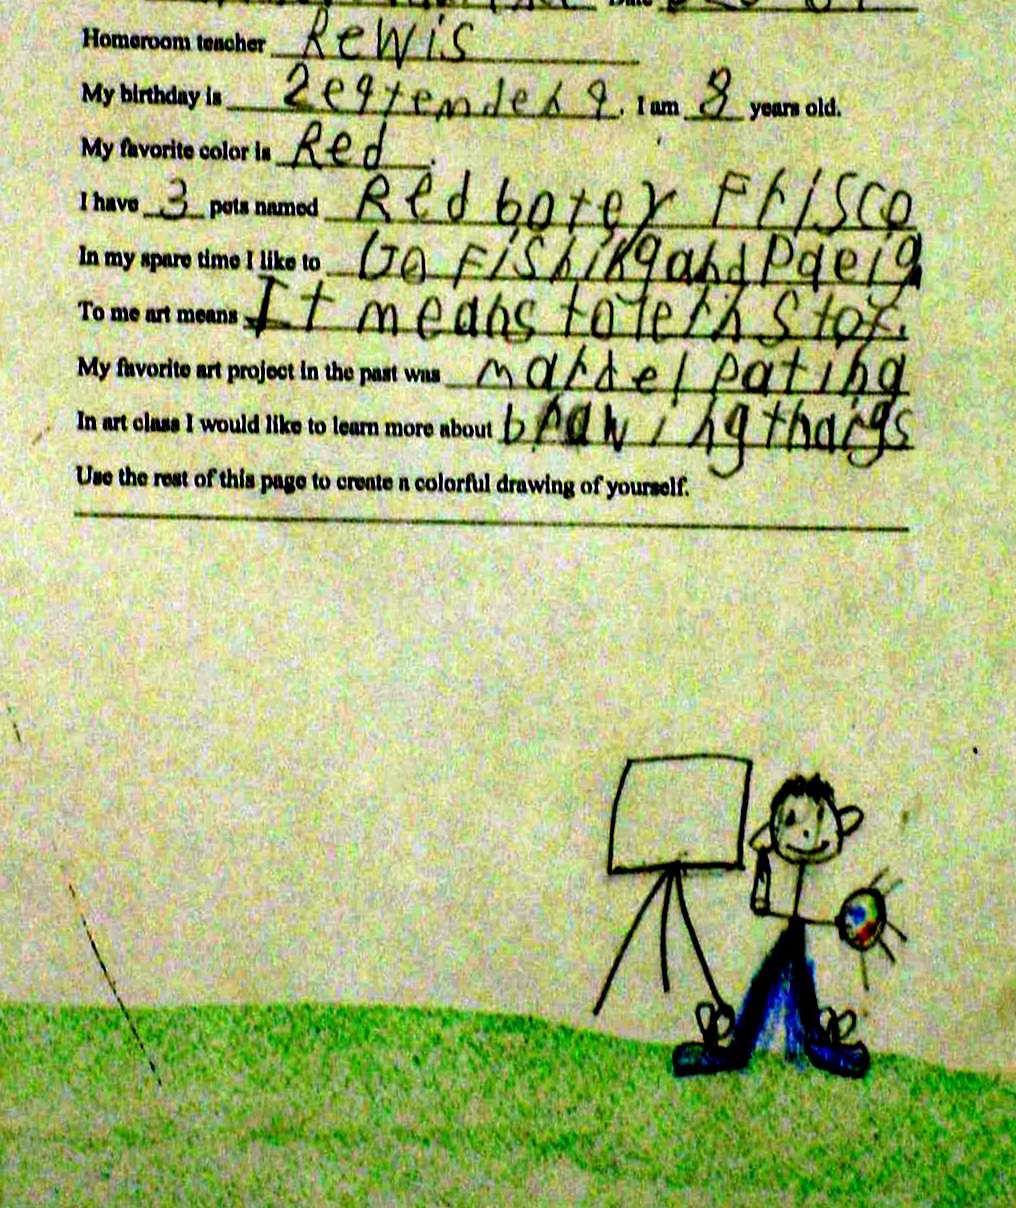 Homeroom teacher Rewis
My birthday is 2eqtemdeh 9. I am 8 years old.
My favorite color is Red.
I have 3 pets named Red botey Fhisco
In my spare time I like to Go Fishihg ahd paeig
To me art means It means to lerh Stof.
My favorite art project in the past was mardel patihg
In art class I would like to learn more about brawihg thaigs
Use the rest of this page to create a colorful drawing of yourself.